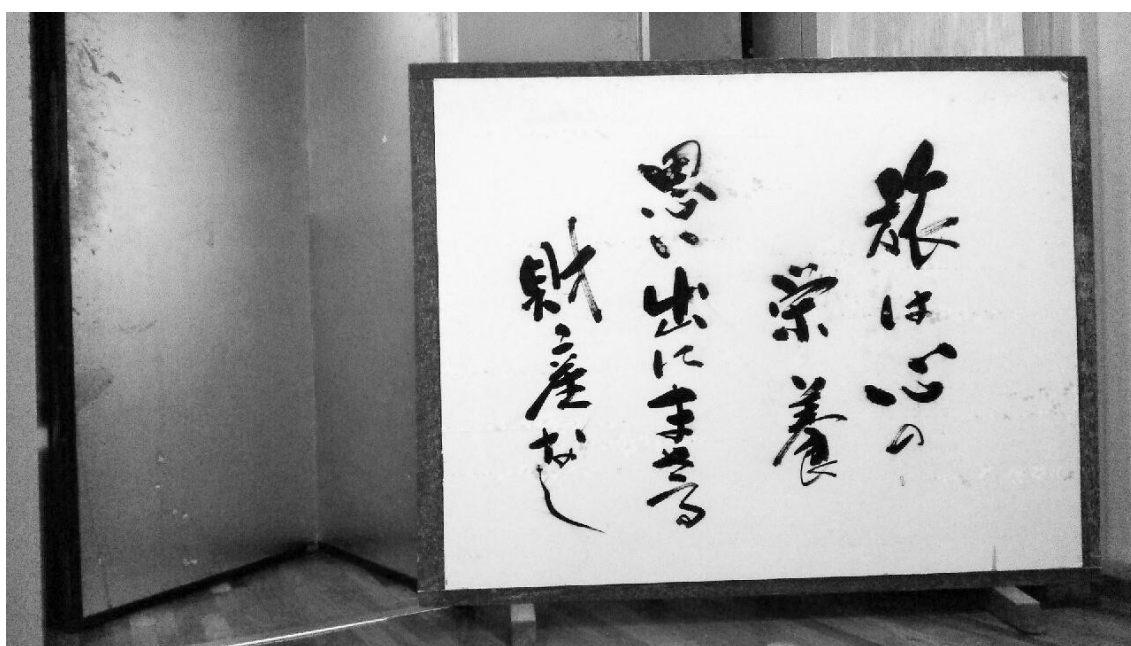 旅は心の
栄養
思い出にまさる
財産なし